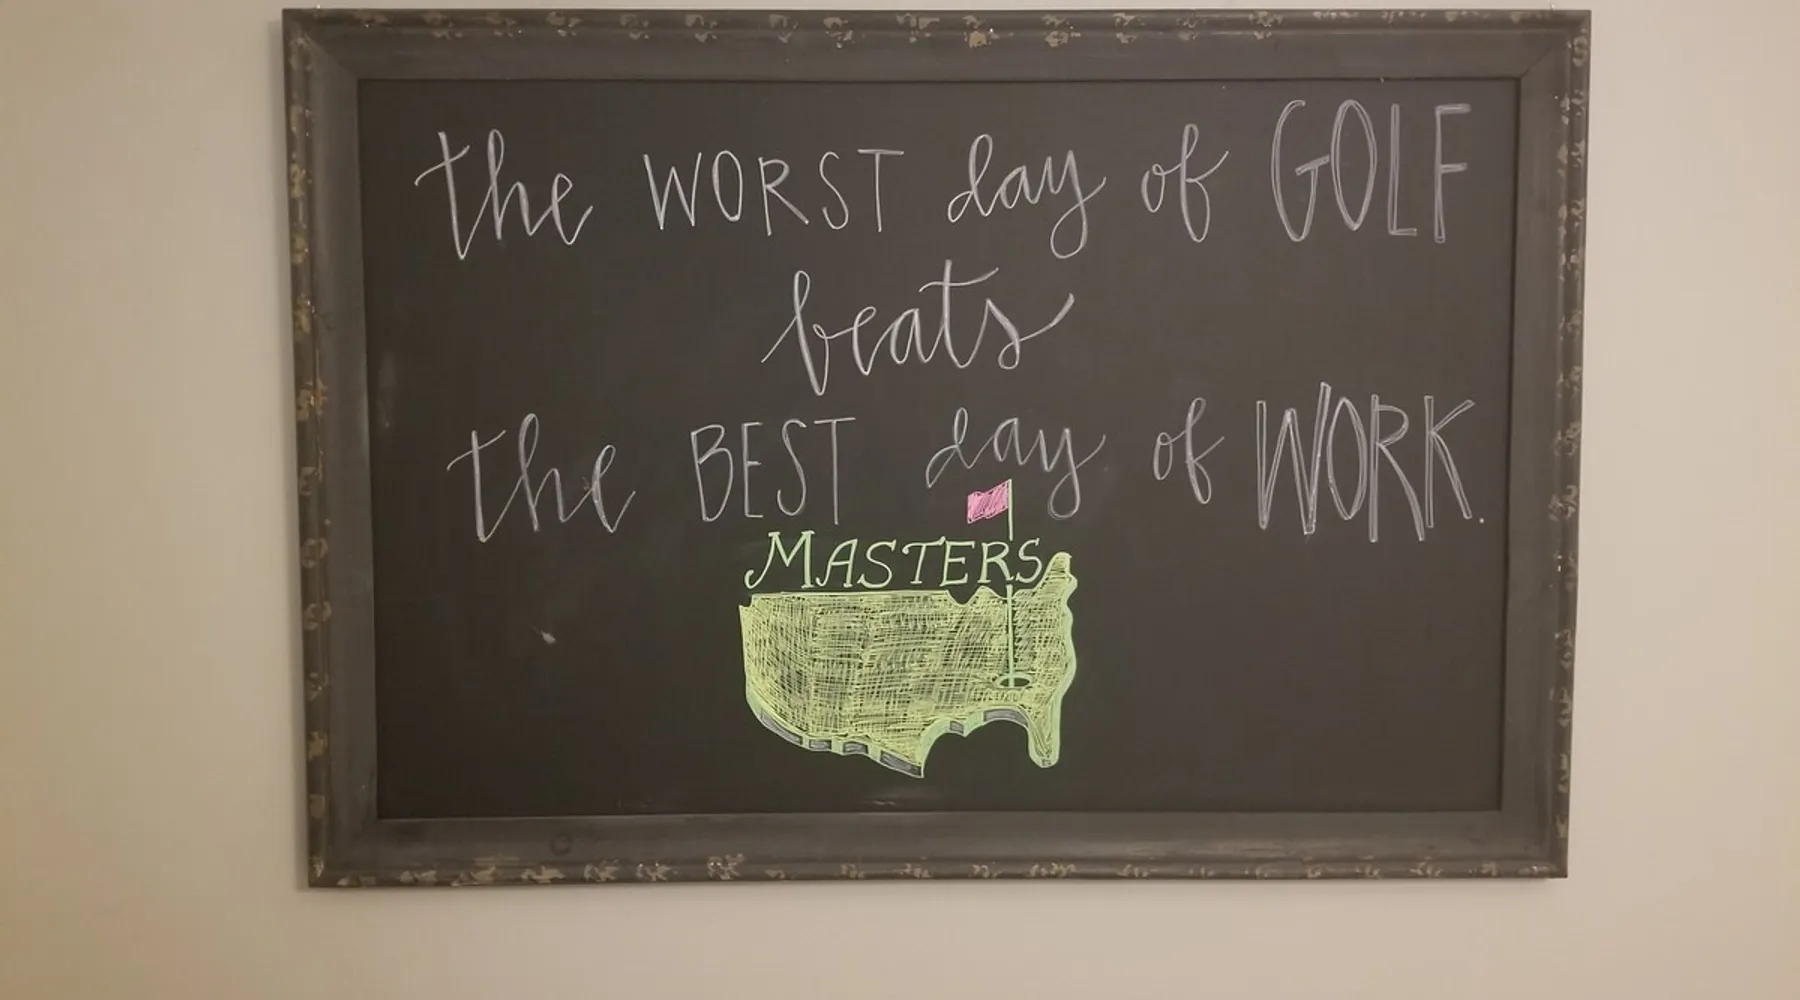 the WORST day of GOLF
beats
the BEST day of WORK.
MASTERS